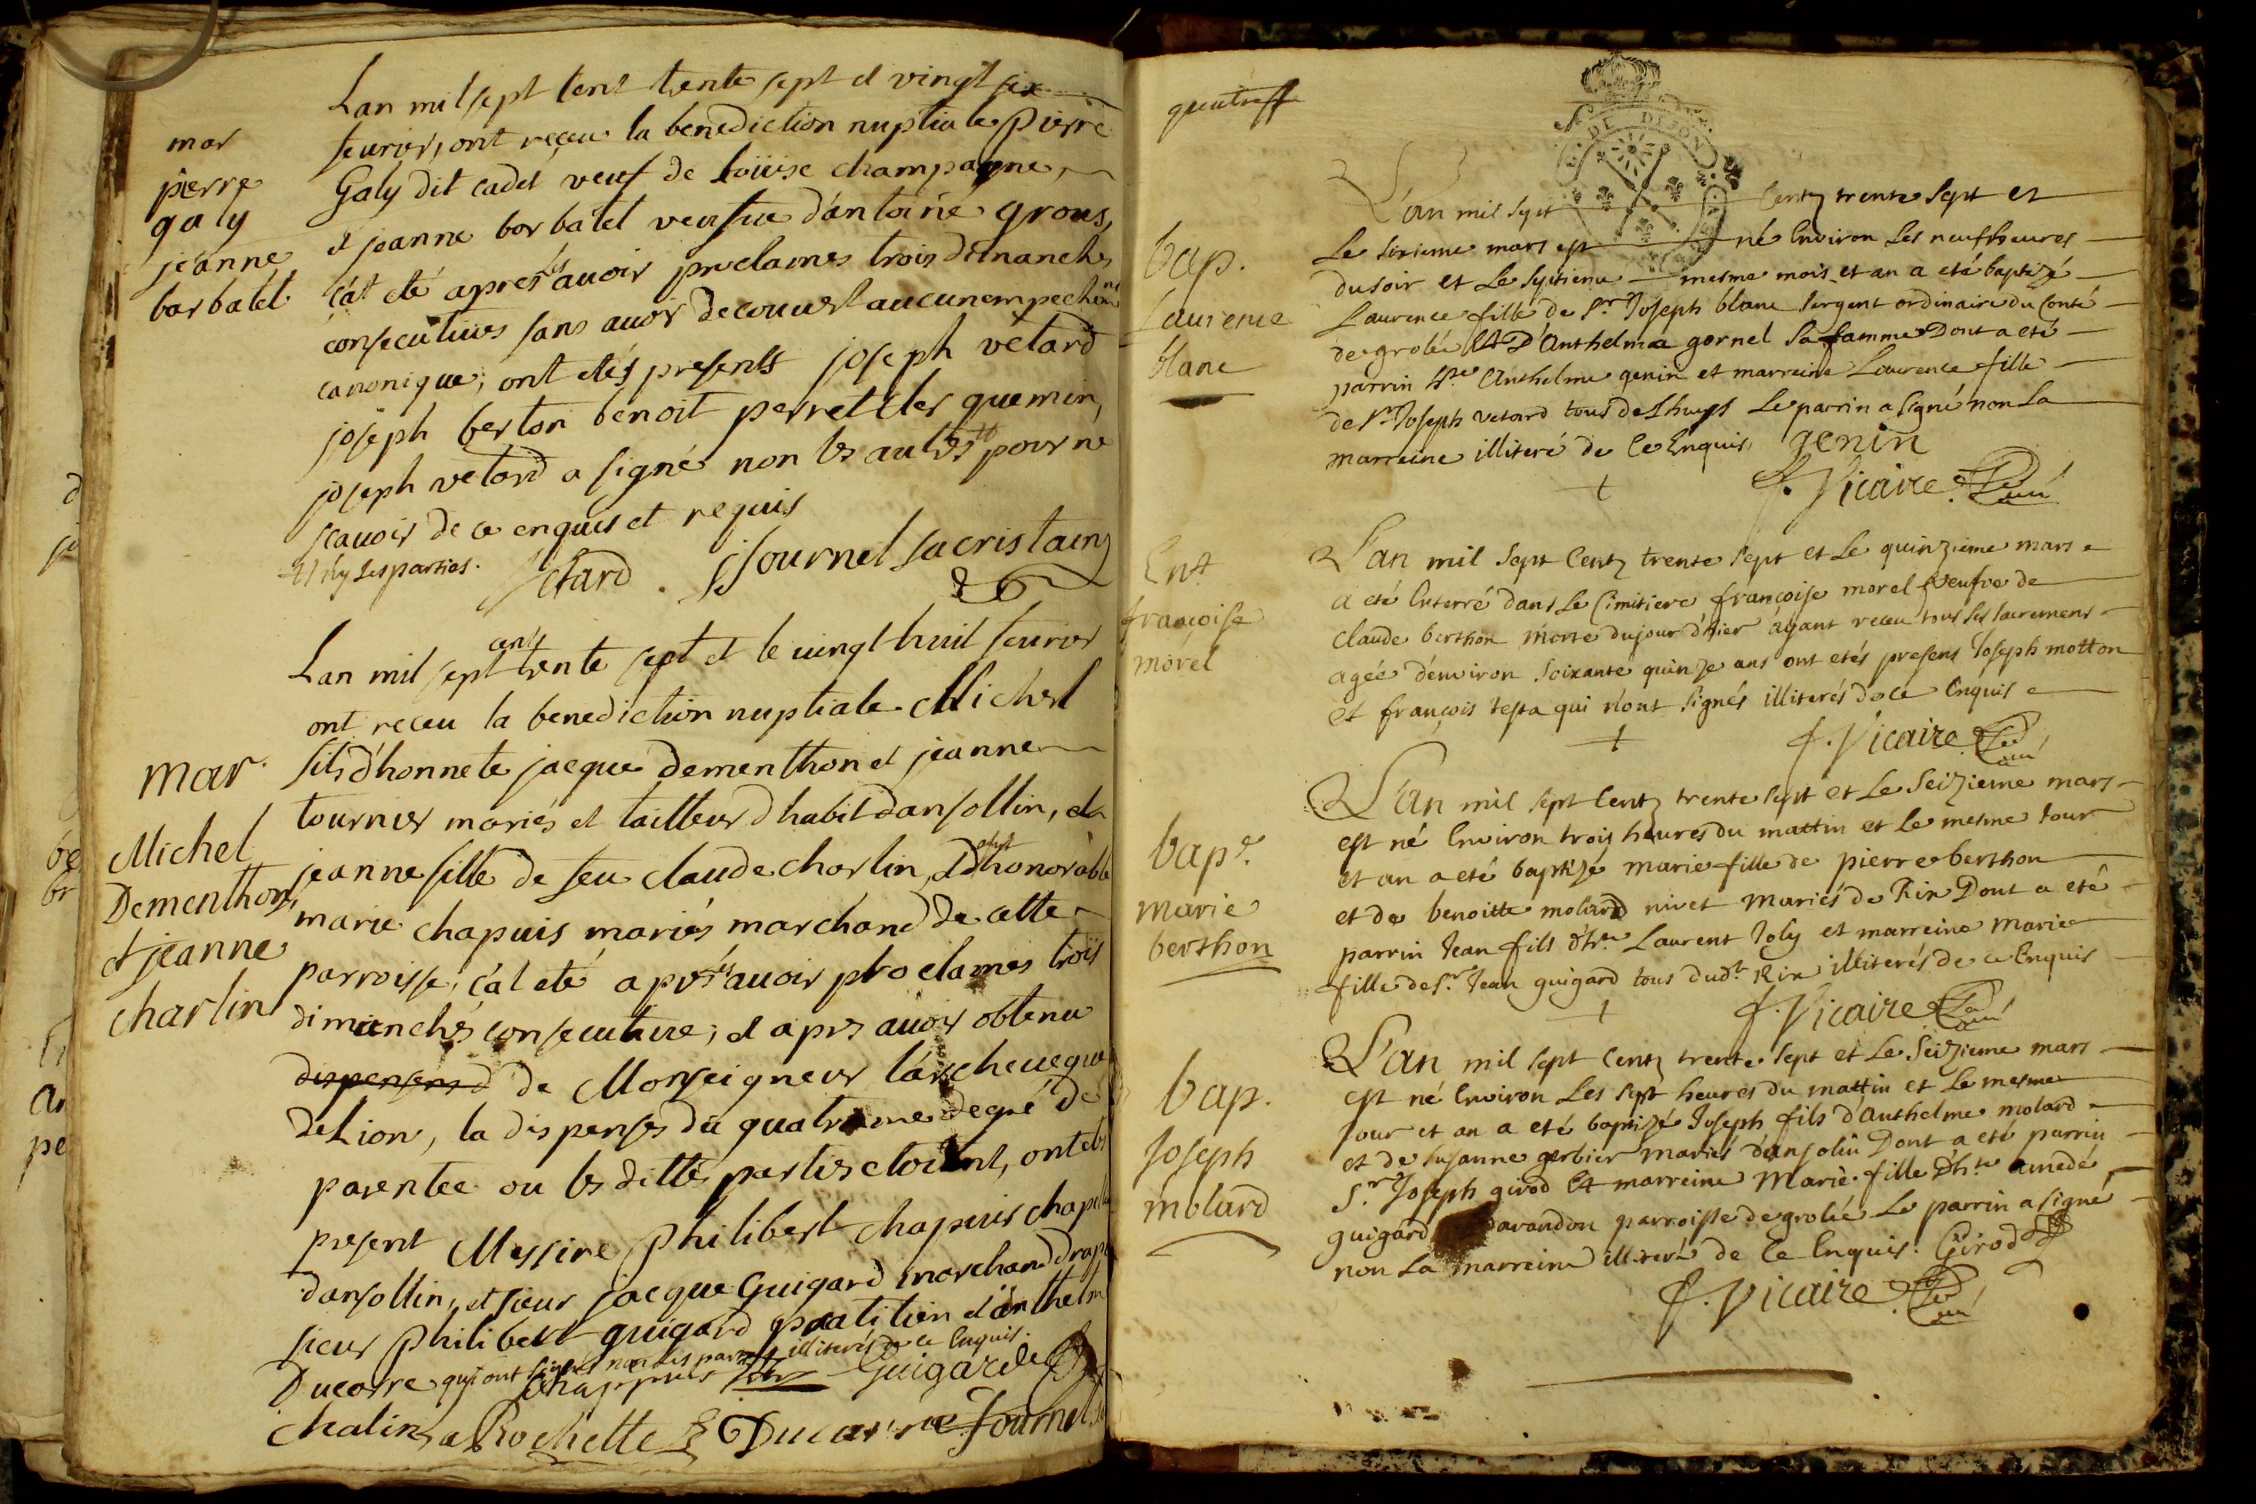 mar
pierre
galy
jeanne
barbatel
Lan mil sept cent trente sept et vingt six
feurier, ont reçeu la benediction nuptiale pierre
Galy dit cadet veuf de loüise champagne,
et jeanne barbatel veufue d'antoine grous,
ça't eté aprés auoir proclames trois dimanches
consecutiues sans auoir decouuert aucun empechem
canonique, ont etés presents joseph vétard
joseph berton benoit perret cler quemin,
joseph vetard a signé non les autres pour ne
scauoir de ce enquis et requis
ny les parties. Vetard. J Journel sacristain
mar.
Michel
Dementhon,
et jeanne
charlin
Lan mil sept cent trente sept et le uingt huit feurier
ont receu la benediction nuptiale Michel
fils d'honnete jacque dementhon et jeanne
tournier mariés et tailleur d habit dansollin, et
jeanne fille de feu claude charlin, et d'honorable
marie chapuis mariés marchand de cette
parroisse, ça't eté aprés auoir proclames trois
dimanches consecutiue, et apres auoir obtenu
de Monseigneur l'archeueque
de Lion, la dispenses du quatrieme degré de
parentee ou les dittes parties etoient, ont etes
present Messire philibert chapuis chapell
dansollin, et sieur jacque Guigard marchand drap
sieur philibert guigard pratitien et anthelm
Ducarre qui ont signés non les parties illiterés de ce Enquis.
Chappuis Guigard
chalin a Rochette Ducarre Journel
DE DIJON
bap.
Laurence
blanc
L'an mil sept Centz trente sept et
Le sixieme mars est né Environ Les neuf heures
du soir et Le septieme mesme mois et an a eté baptizé
Laurence fille de Sr Joseph blanc sergent ordinaire du Conté
de grolée et D'Anthelma gornel sa famme Dont a eté
parrin Anthelme genin et marreine Laurence fille
de Sr Joseph vetard tous de Lhuys Le parrin a signé non La
marreine illiteré de Ce Enquis. genin
J. Vicaire Curé
Ent
françoise
morel
L'an mil sept Centz trente sept et Le quinzieme mars
a eté Enterré dans Le Cimitiere françoise morel veufve de
Claude berthon morte du jour d'hier ayant receu tous ses sacremens
agée d'environ soixante quinze ans ont etés presens Joseph motton
et françois testa qui n'ont signés illiterés de ce Enquis
J. Vicaire Curé
bapt.
marie
berthon
L'an mil sept Centz trente sept et Le Seizieme mars
est né Environ trois heures du mattin et Le mesme Jour
et an a eté baptizé marie fille de pierre berthon
et de benoitte molard nivet mariés de Rix Dont a eté
parrin Jean fils d'hte Laurent Joly et marreine marie
fille de Sr Jean guigard tous dudt Rix illiterés de ce Enquis
J. Vicaire Curé
bap.
Joseph
molard
L'an mil sept Centz trente sept et Le Seizieme mars
est né Environ Les sept heures du mattin et Le mesme
Jour et an a eté baptizé Joseph fils d'Anthelme molard
et de susanne gerbier mariés d'ansolin Dont a eté parrin
Sr Joseph girod Et marreine Marie fille d'hte amedé
guigard davandon parroisse de grolée Le parrin a signé
non La marreine illiteré de Ce Enquis. Girod
J. Vicaire Curé